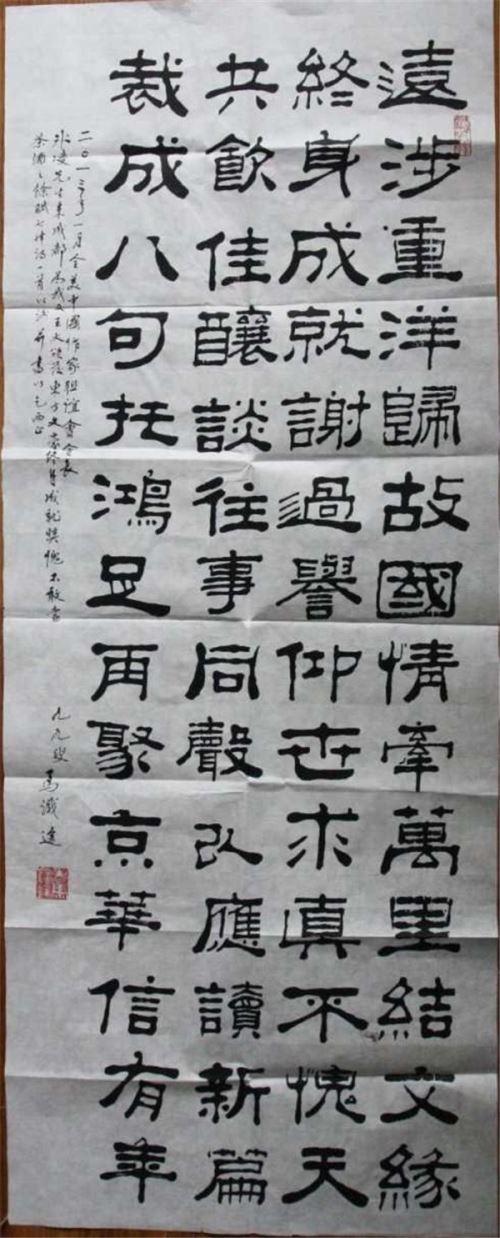 遠涉重洋歸故國情牽萬里結文緣
終身成就謝過譽仰世求真不愧天
共飲佳釀談往事同聲以應讀新篇
裁成八句托鴻足再聚京華信有年
二〇一三年一月全美中國作家聯誼會會長
冰凌先生來成都為我及王火頒發東方文豪終身成就獎愧不敢當
茶酒之餘賦七律詩一首以 并書以乞兩正
九九叟 馬識途